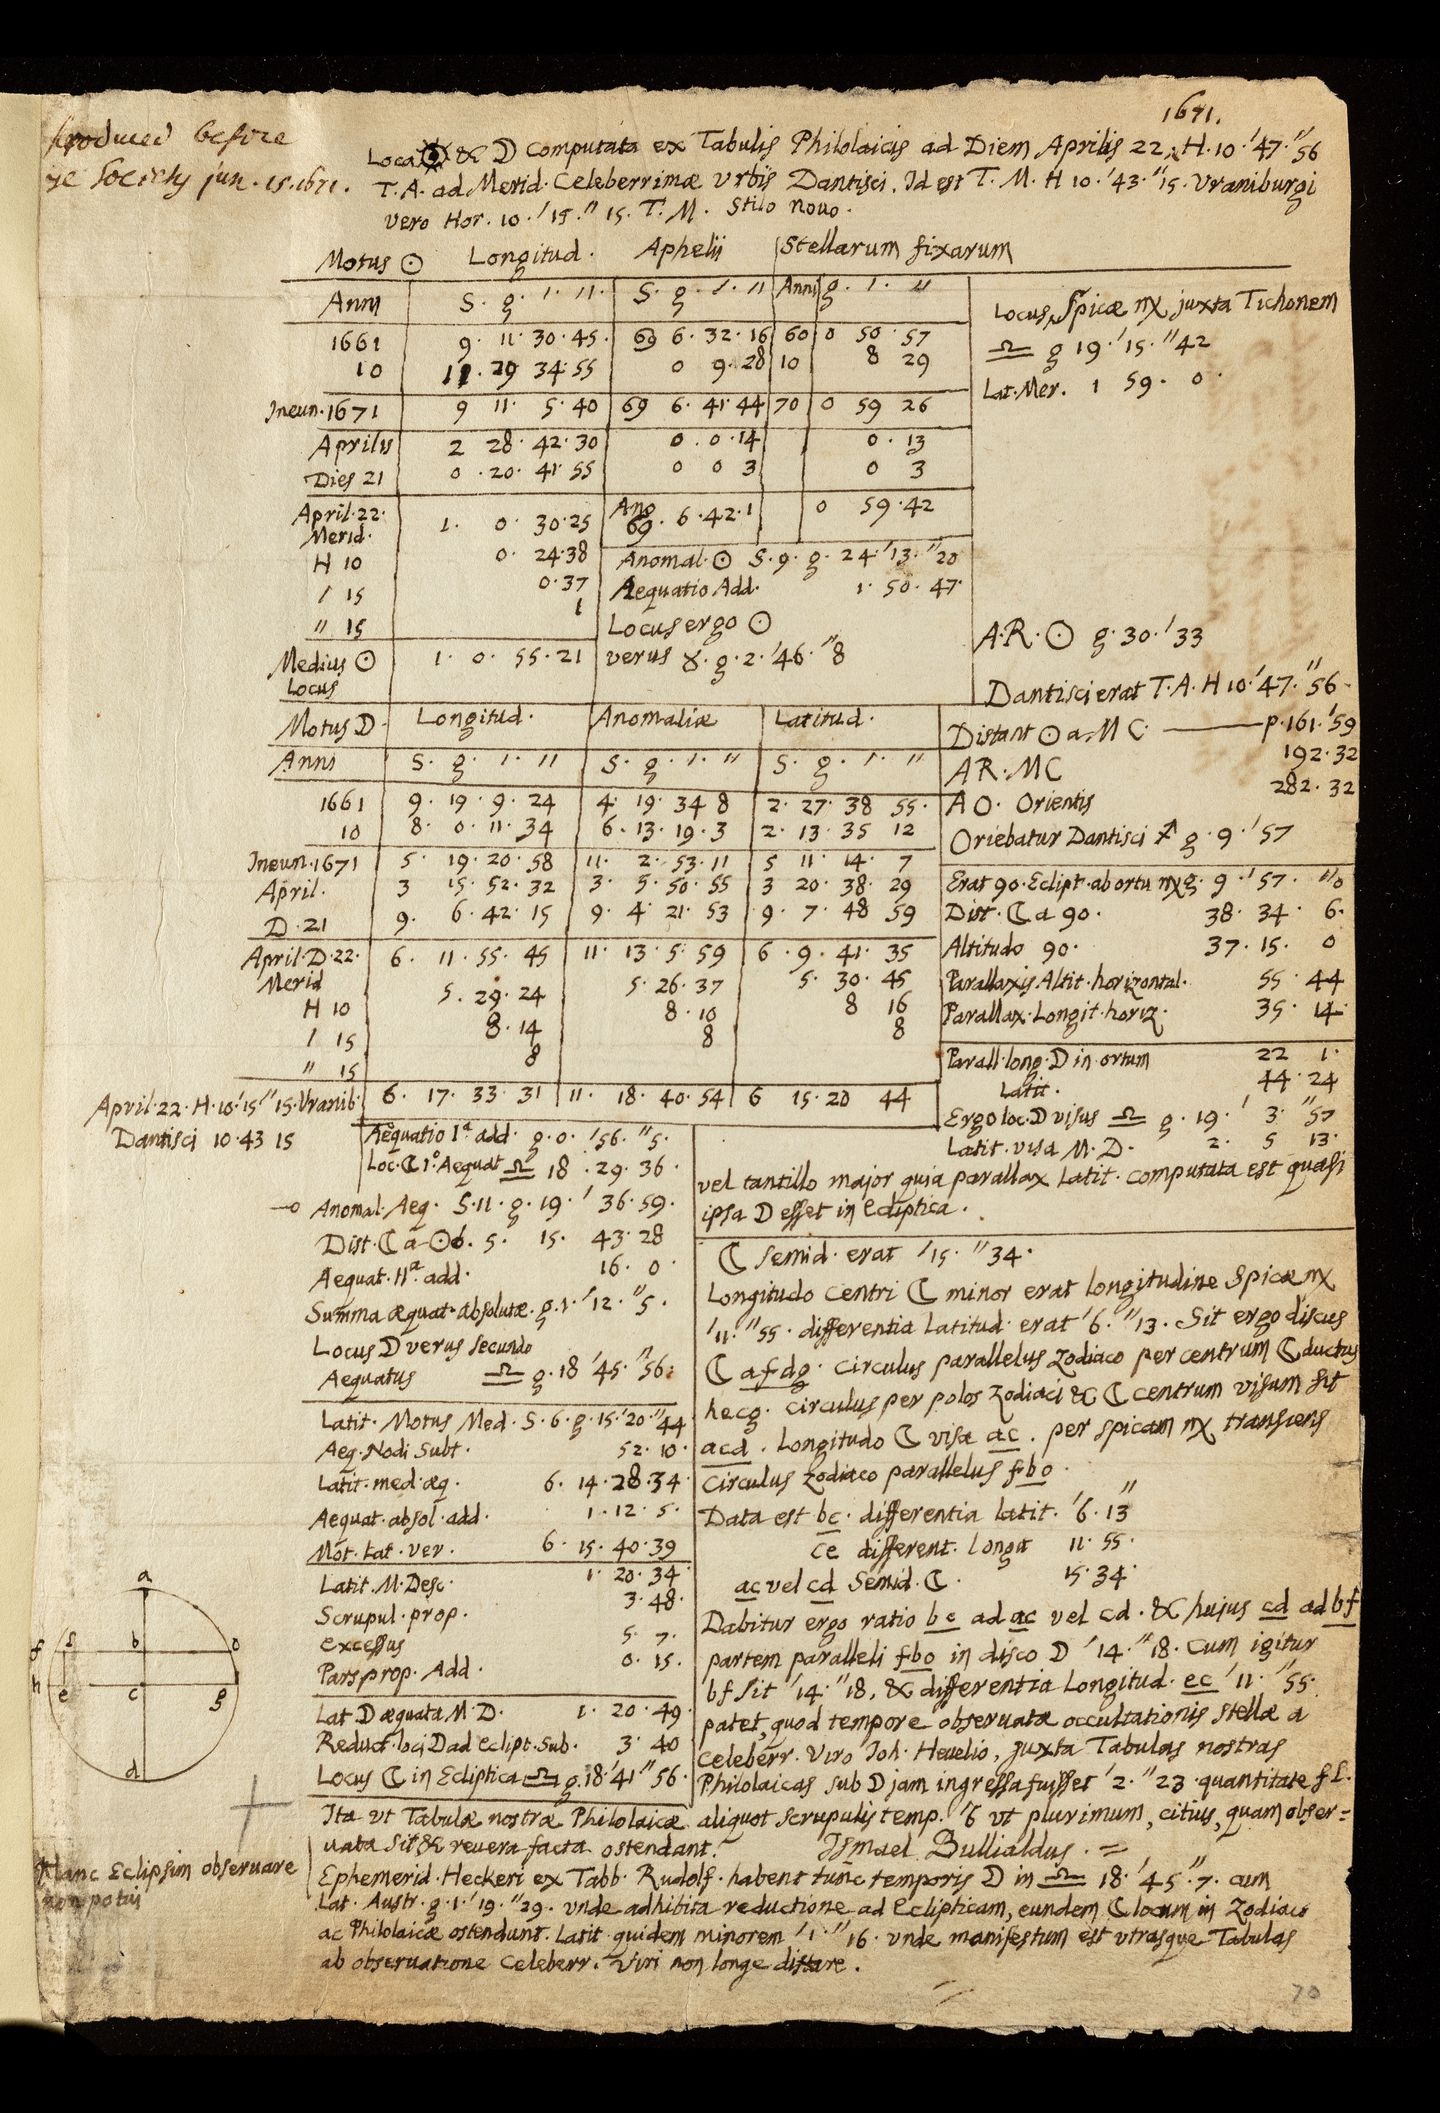 1671.
produced before
ye Society jun. 15. 1671.
Loca ☉ & ☽ Computata ex Tabulis Philolaicis ad Diem Aprilis 22. H. 10. ′47. ″56
T. A. ad Merid. Celeberrimæ Vrbis Dantisci, Id est T. M. H 10. ′43. ″15. Vraniburgi
vero Hor. 10. ′15. ″15. T. M. Stilo nouo.
Motus ☉ Longitud. Aphelii Stellarum fixarum
Anni S. g. ′. ″. S. g. ′. ″ Anni g. ′. ″
1661 9. 11. 30. 45. 69 6. 32. 16 60 0 50. 57
10 11. 29 34. 55 0 9. 28 10 8 29
Ineun. 1671 9 11. 5. 40 69 6. 41. 44 70 0 59 26
Aprilis 2 28. 42. 30 0. 0. 14 0. 13
Dies 21 0. 20. 41. 55 0 0 3 0 3
April. 22. Merid. 1. 0. 30. 25 Ano 69. 6. 42. 1 0 59. 42
H 10 0. 24. 38
′ 15 0. 37
″ 15 1
Medius ☉ Locus 1. 0. 55. 21
Anomal. ☉ S. 9. g. 24. ′13. ″20
Aequatio Add. 1. 50. 47.
Locus ergo ☉
verus ♉. g. 2. ′46. ″8
Locus Spicæ ♍ juxta Tichonem
♎ g 19. ′15. ″42
Lat. Mer. 1 59. 0.
A. R. ☉ g. 30. ′33
Dantisci erat T. A. H 10. ′47. ″56.
Distant ☉ a. M C. p. 161. ′59
AR. MC 192. 32
A O. Orientis 282. 32
Oriebatur Dantisci ♐ g. 9. ′57
Erat 90. Eclipt. ab ortu ♍ g. 9. ′57. ″0
Dist. ☾ a 90. 38. 34. 6.
Altitudo 90. 37. 15. 0
Parallaxis Altit. horizontal. 55. 44
Parallax. Longit. horiz. 35. 14
Parall. long. ☽ in ortum 22 1.
Latit. 44. 24
Ergo loc. ☽ visus ♎ g. 19. ′ 3. ″57
Latit. visa M. D. 2. 5 13.
Motus ☽ Longitud. Anomaliæ Latitud.
Anni S. g. ′. ″ S. g. ′. ″ S. g. ′. ″
1661 9. 19. 9. 24 4. 19. 34 8 2. 27. 38 55.
10 8. 0. 11. 34 6. 13. 19. 3 2. 13. 35 12
Ineun. 1671 5. 19. 20. 58 11. 2. 53. 11 5 11. 14. 7
April. 3 15. 52. 32 3. 5. 50. 55 3 20. 38. 29
D. 21 9. 6. 42. 15 9. 4. 21. 53 9. 7. 48 59
April. D. 22. Merid 6. 11. 55. 45 11. 13. 5. 59 6. 9. 41. 35
H 10 5. 29. 24 5. 26. 37 5. 30. 45
′ 15 8. 14 8. 10 8 16
″ 15 8 8 8
April. 22. H. 10. ′15. ″15. Vranib. 6. 17. 33. 31 11. 18. 40. 54 6 15. 20 44
Dantisci 10. 43 15
Aequatio 1ª add. g. 0. ′56. ″5.
Loc. ☾ 1º. Aequat ♎ 18. 29. 36.
Anomal. Aeq. S. 11. g. 19. ′ 36. 59.
Dist. ☾ a ☉ 5. 15. 43. 28
Aequat. IIª. add. 16. 0.
Summa æquat. absolutæ. g. 1. ′12. ″5.
Locus ☽ verus secundo
Aequatus ♎ g. 18 ′45. ″56.
Latit. Motus Med. S. 6. g. 15. ′20. ″44
Aeq. Nodi Subt. 52. 10.
Latit. med. æq. 6. 14. 28. 34
Aequat. absol. add. 1. 12. 5.
Mot. Lat. ver. 6. 15. 40. 39
Latit. M. Desc. 1. 20. 34
Scrupul. prop. 3. 48.
excessus 5. 7.
Pars prop. Add. 0. 15.
Lat ☽ æquata M. D. 1. 20. 49.
Reduct. loci ☽ ad eclipt. Sub. 3. 40
Locus ☾ in Ecliptica ♎ g. 18. ′41. ″56.
vel tantillo major quia parallax Latit. computata est quasi
ipsa ☽ esset in ecliptica.
☾ semid. erat ′15. ″34.
Longitudo centri ☾ minor erat longitudine Spicæ ♍
′11. ″55. differentia Latitud. erat ′6. ″13. Sit ergo discus
☾ afdg. circulus parallelus Zodiaco per centrum ☾ ductus
hecg. circulus per polos Zodiaci & ☾ centrum visum sit
acd. Longitudo ☾ visa ac. per spicam ♍ transiens
circulus Zodiaco parallelus fbo.
Data est bc. differentia latit. ′6. 13″
ce different. longit 11. 55.
ac vel cd Semid. ☾. 15. 34.
Dabitur ergo ratio bc ad ac vel cd. & hujus cd ad bf
partem paralleli fbo in disco ☽ ′14. ″18. Cum igitur
bf sit ′14. ″18. & differentia Longitud. ec ′11. ″55.
patet, quod tempore obseruatæ occultationis stellæ a
celeberr. Viro Joh. Heuelio, juxta Tabulas nostras
Philolaicas sub ☽ jam ingressa fuisset ′2. ″23 quantitate fL.
Ita vt Tabulæ nostræ Philolaicæ aliquot scrupulis temp. ′6 vt plurimum, citius, quam obser=
uata sit & reuera facta ostendant. Ismael Bullialdus.
Ephemerid. Heckeri ex Tabb. Rudolf. habent tunc temporis ☽ in ♎ 18. ′45. ″7. cum
Lat. Austr. g. 1. ′19. ″29. vnde adhibita reductione ad Eclipticam, eundem ☾ locum in Zodiaco
ac Philolaicæ ostendunt. Latit. quidem minorem ′1. ″16. vnde manifestum est vtrasque Tabulas
ab obseruatione Celeberr. Viri non longe distare.
a
f b o
h e c g
d
Hanc Eclipsim obseruare
non potui
70